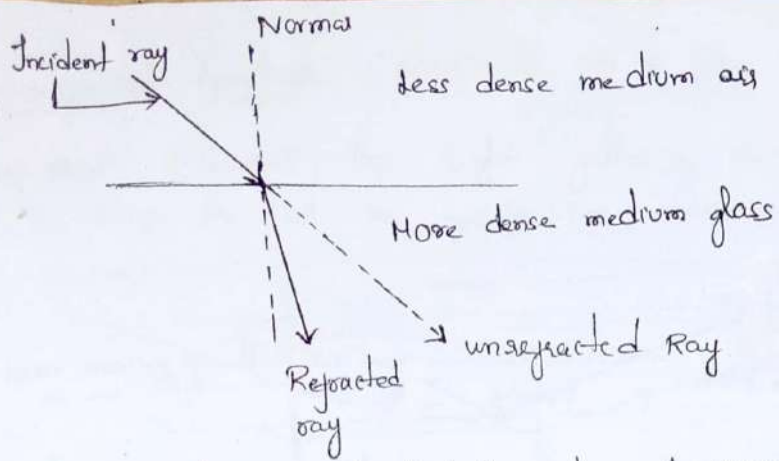 Normal
Incident ray
Less dense medium air
More dense medium glass
unrefracted Ray
Refracted
ray